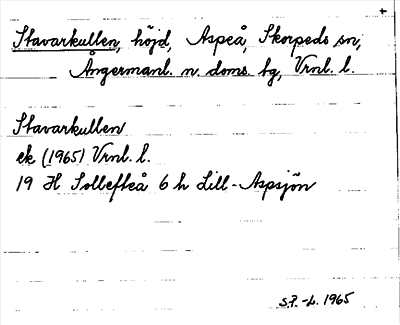 Stavarkullen, höjd, Aspeå, Skorpeds sn,
Ångermanl. n. doms. tg, Vrnl. l.
Stavarkullen
ek (1965) Vrnl. l.
19 H Sollefteå 6 h Lill-Aspsjön
S.P.-L. 1965